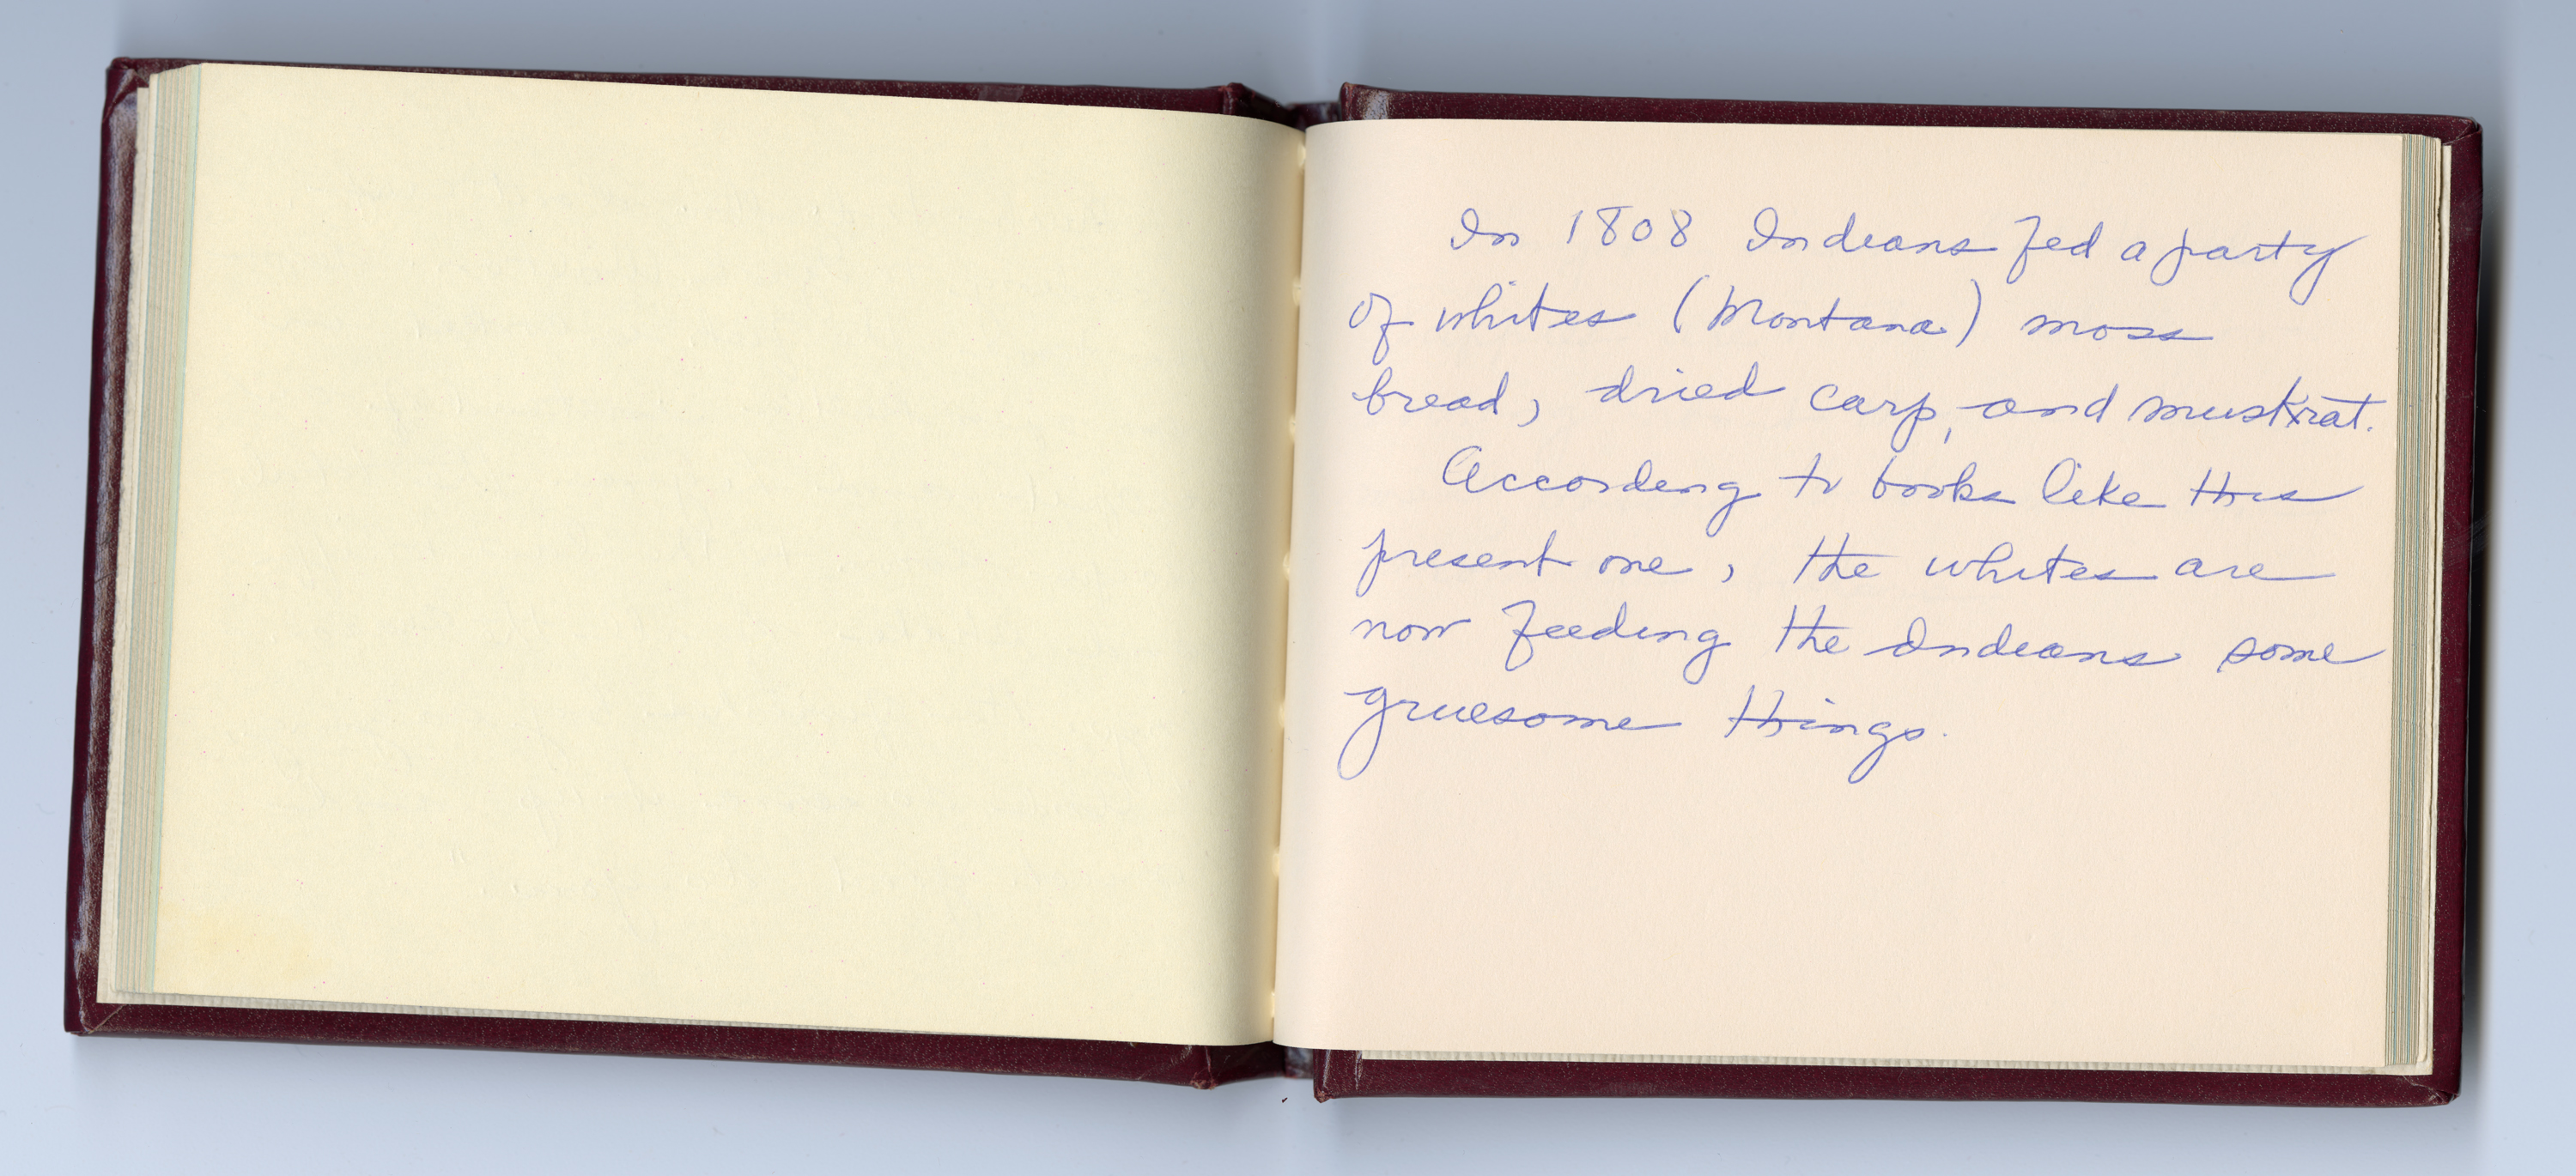 In 1808 Indians fed a party
of whites (Montana) moss
bread, dried carp, and muskrat.
According to books like this
present one, the whites are
now feeding the Indians some
gruesome things.